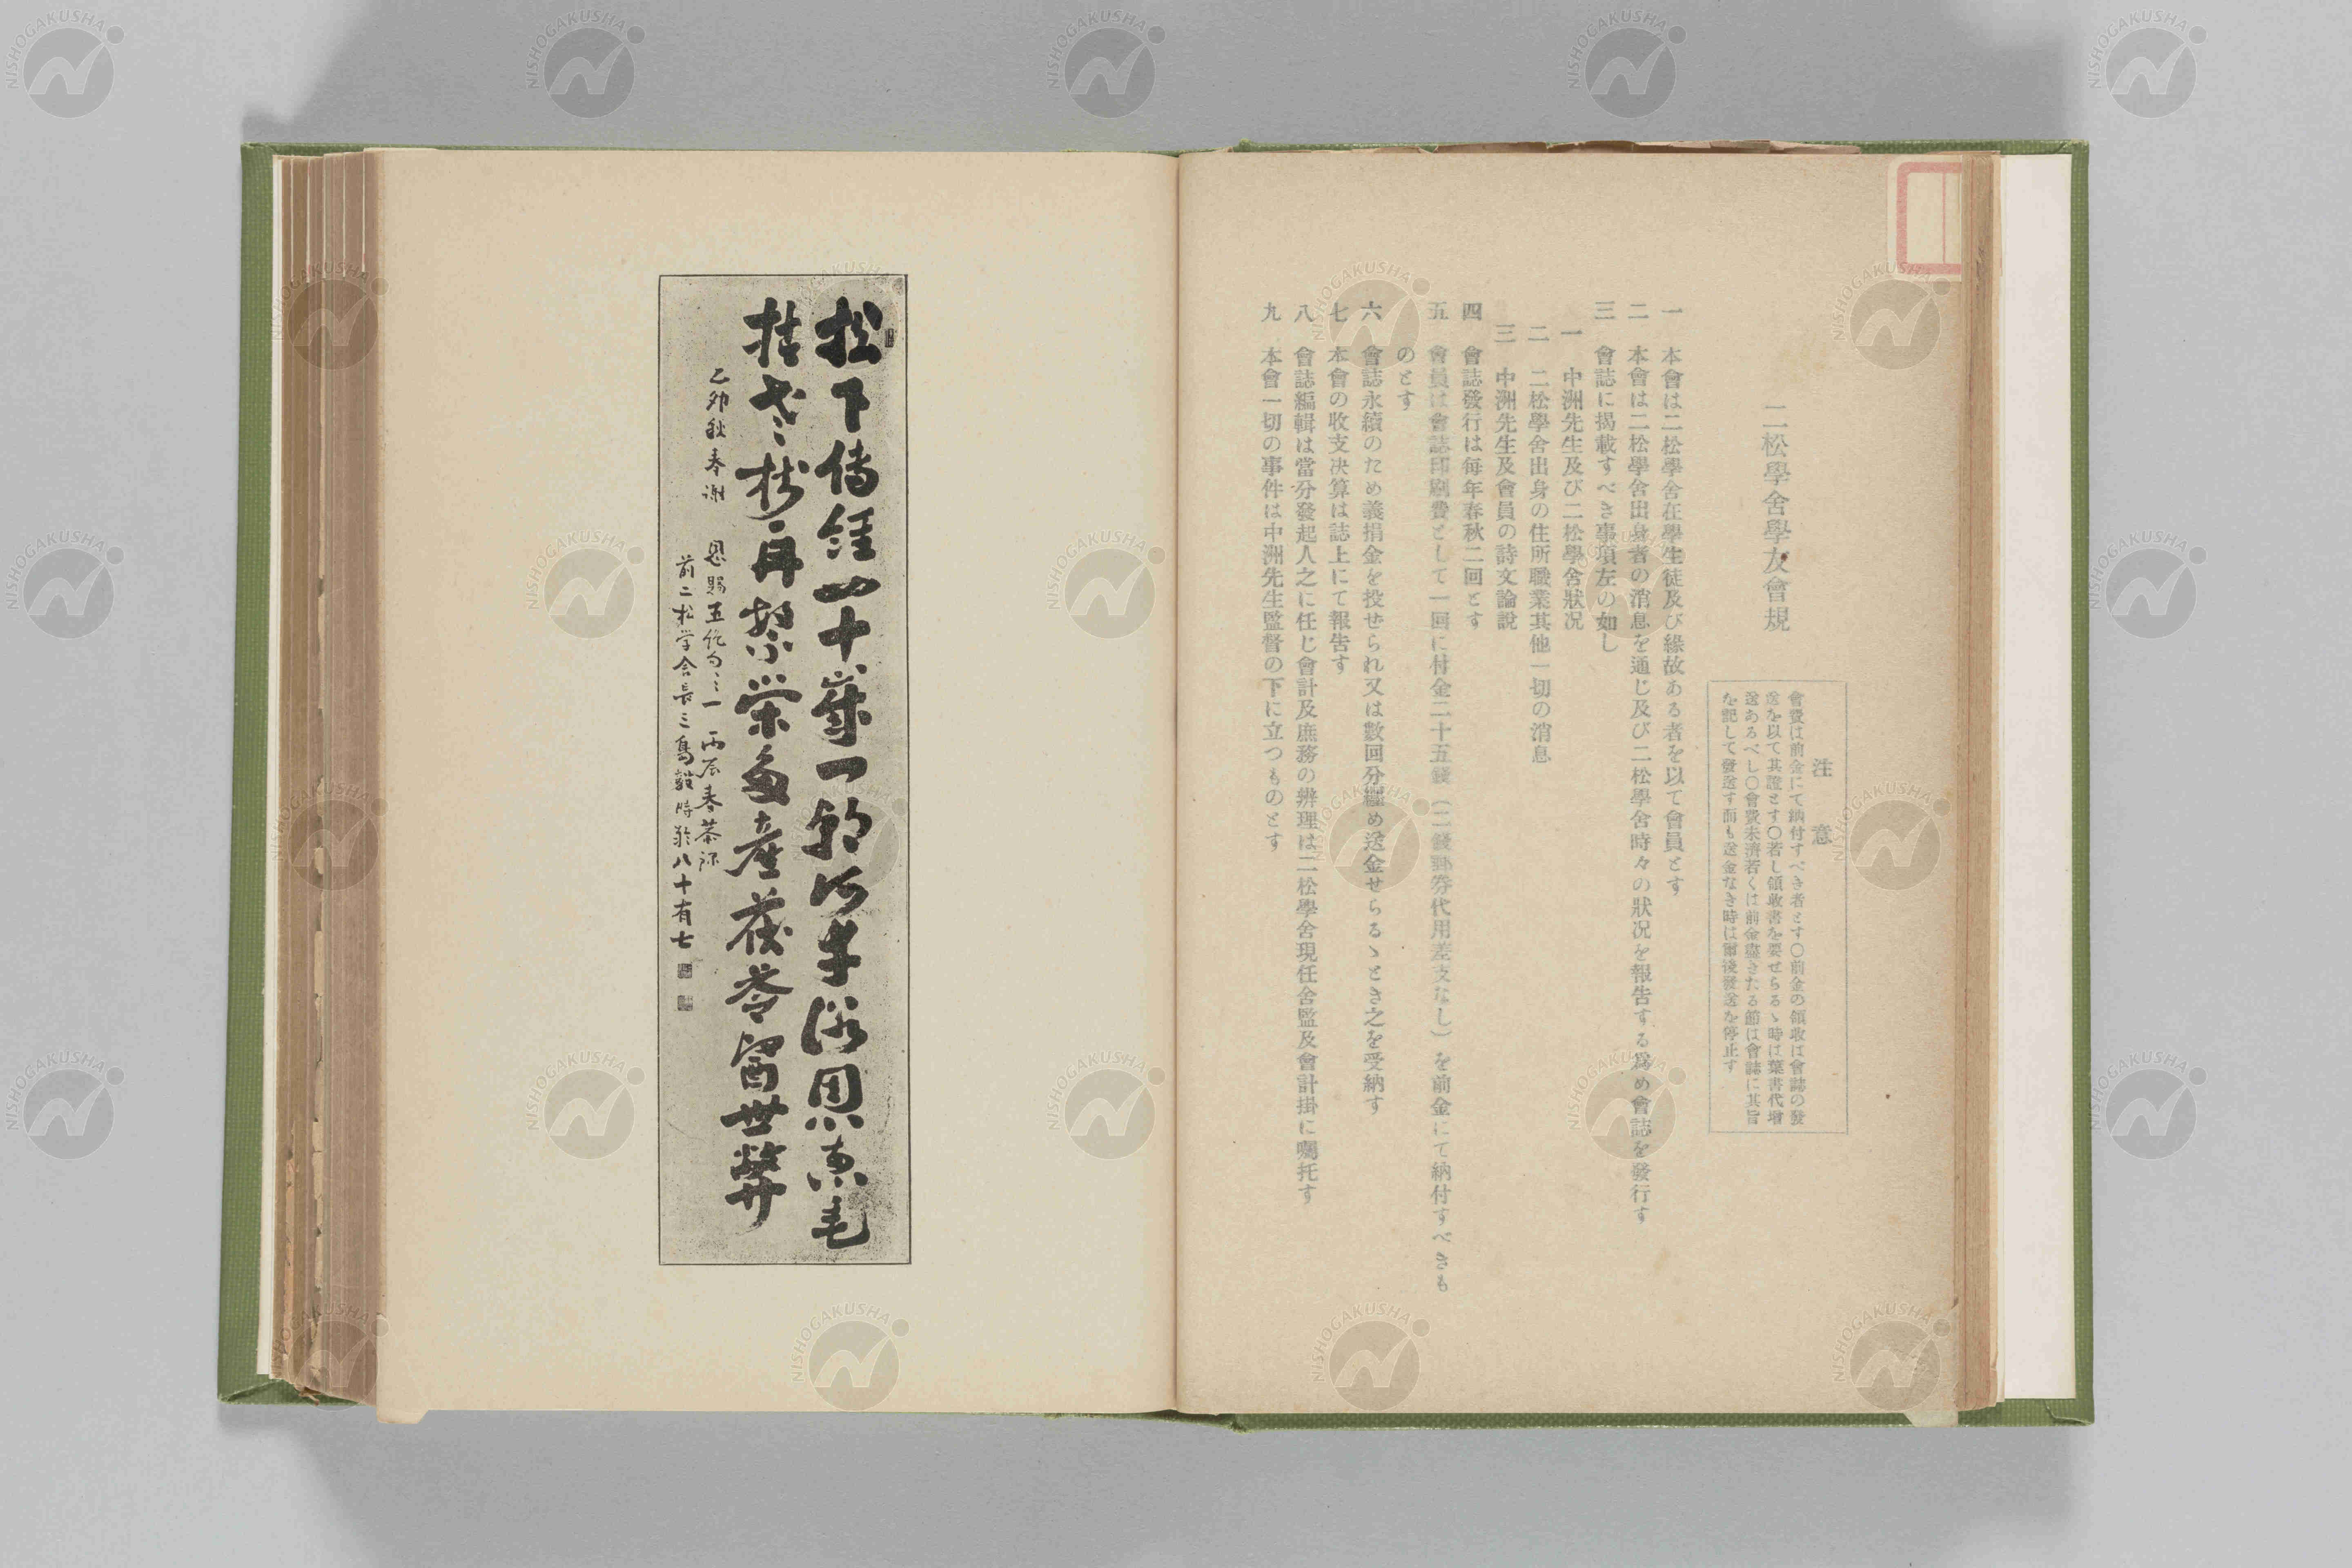 二松學舍學友會規
注意
會費は前金にて納付すべき者とす〇前金の領收は會誌の發
送を以て其證とす〇若し領收書を要せらるゝ時は葉書代增
送あるべし〇會費未濟若くは前金盡きたる節は會誌に其旨
を記して發送す而も送金なき時は爾後發送を停止す
一 本會は二松學舍在學生徒及び緣故ある者を以て會員とす
二 本會は二松學舍出身者の消息を通じ及び二松學舍時々の狀况を報告する爲め會誌を發行す
三 會誌に揭載すべき事項左の如し
一 中洲先生及び二松學舍狀况
二 二松學舍出身の住所職業其他一切の消息
三 中洲先生及會員の詩文論說
四 會誌發行は每年春秋二回とす
五 會員は會誌印刷費として一回に付金二十五錢(二錢郵券代用差支なし)を前金にて納付すべきも
のとす
六 會誌永續のため義捐金を投せられ又は數回分纏め送金せらるゝとき之を受納す
七 本會の收支决算は誌上にて報告す
八 會誌編輯は當分發起人之に任じ會計及庶務の辨理は二松學舍現任舍監及會計掛に囑托す
九 本會一切の事件は中洲先生監督の下に立つものとす
松下傳經四十歲一朝何幸浴恩
枯老樹再繁榮多產茯苓留世弊
乙卯秋奉謝 恩賜五絕句之一 丙辰春恭
前二松学舍長三島毅時齡八十有七
NISHOGAKUSHA